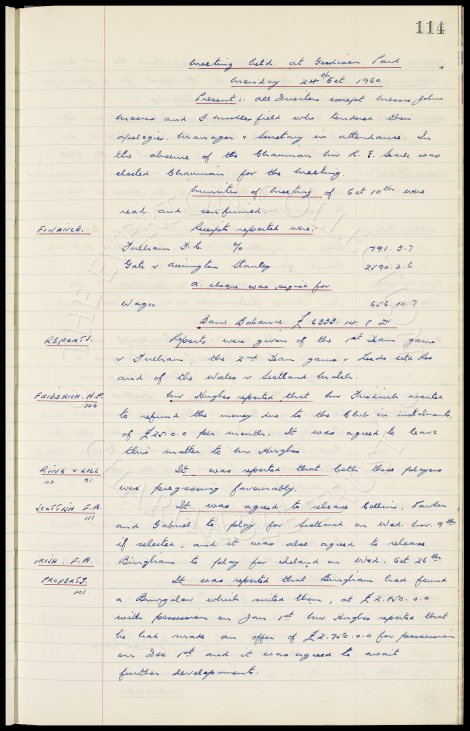 114
Meeting held at Goodison Park
Monday 24th Oct 1960.
Present:- All Directors except Messrs John
Moores and F Micklesfield who tendered their
apologies. Manager & Secretary in attendance. In
the absence of the Chairman Mr R. E. Searle was
elected Chairman for the Meeting.
Minutes of Meeting of Oct 10th were
read and confirmed.
FINANCE. Receipts reported were:-
Fulham F.C. % 1791. 3. 7
Gate v Accrington Stanley 2190. 2. 6
A cheque was signed for
Wages 656. 10. 7
Bank Balance £ 6333. 14. 8 D
REPORTS. Reports were given of the 1st Team game
v Fulham, the 2nd Team game v Leeds Utd Res
and of the Wales v Scotland Match.
FRIEDRICH. H.P. Mr Hughes reported that Mr Friedrich wanted
100 to refund the money due to the Club in instalments
of £25.0.0 per month. It was agreed to leave
this matter to Mr Hughes.
RING & GILL It was reported that both these players
112 91. were progressing favourably.
SCOTTISH F.A. It was agreed to release Collins, Parker
111 and Gabriel to play for Scotland on Wed. Nov. 9th
if selected, and it was also agreed to release
IRISH. F.A. Bingham to play for Ireland on Wed. Oct 26th
PROPERTY. It was reported that Bingham had found
101. a Bungalow which suited them, at £2.950.0.0
with possession on Jan 1st. Mr Hughes reported that
he had made an offer of £2.750.0.0 for possession
on Dec 1st and it was agreed to await
further developments.
THE EVERTON COLLECTION